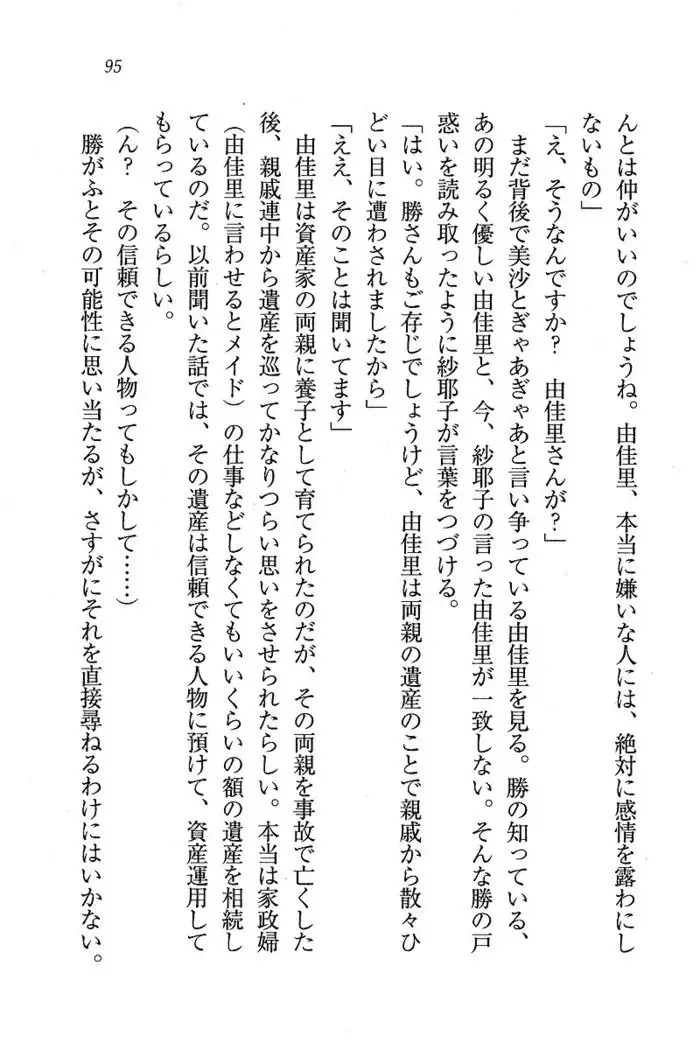 95
んとは仲がいいのでしょうね。由佳里、本当に嫌いな人には、絶対に感情を露わにし
ないもの」
「え、そうなんですか？　由佳里さんが？」
　まだ背後で美沙とぎゃあぎゃあと言い争っている由佳里を見る。勝の知っている、
あの明るく優しい由佳里と、今、紗耶子の言った由佳里が一致しない。そんな勝の戸
惑いを読み取ったように紗耶子が言葉をつづける。
「はい。勝さんもご存じでしょうけど、由佳里は両親の遺産のことで親戚から散々ひ
どい目に遭わされましたから」
「ええ、そのことは聞いてます」
　由佳里は資産家の両親に養子として育てられたのだが、その両親を事故で亡くした
後、親戚連中から遺産を巡ってかなりつらい思いをさせられたらしい。本当は家政婦
（由佳里に言わせるとメイド）の仕事などしなくてもいいくらいの額の遺産を相続し
ているのだ。以前聞いた話では、その遺産は信頼できる人物に預けて、資産運用して
もらっているらしい。
（ん？　その信頼できる人物ってもしかして……）
　勝がふとその可能性に思い当たるが、さすがにそれを直接尋ねるわけにはいかない。